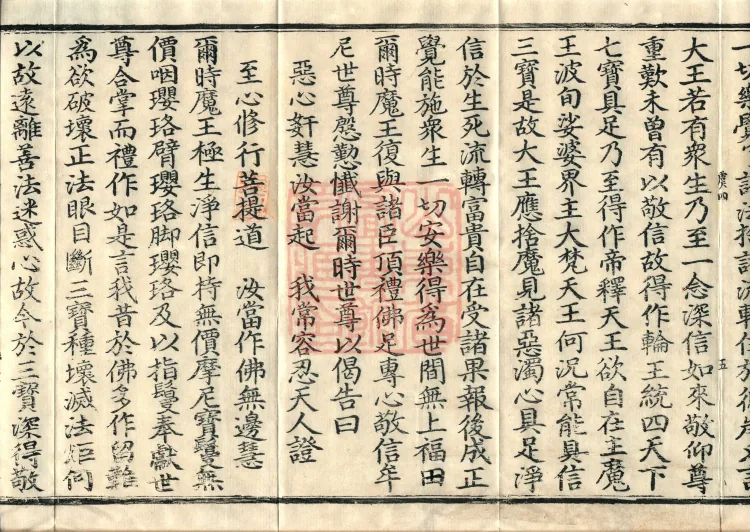 虞四
五
大王若有衆生乃至一念深信如來敬仰尊
重歎未曾有以敬信故得作輪王統四天下
七寶具足乃至得作帝釋天王欲自在主魔
王波旬娑婆界主大梵天王何況常能具信
三寶是故大王應捨魔見諸惡濁心具足淨
信於生死流轉富貴自在受諸果報後成正
覺能施衆生一切安樂得為世間無上福田
爾時魔王復與諸臣頂禮佛足專心敬信牟
尼世尊慇懃懺謝爾時世尊以偈告曰
惡心奸慧汝當起　我常容忍天人證
至心修行菩提道　汝當作佛無邊慧
爾時魔王極生淨信即持無價摩尼寶鬘無
價咽瓔珞臂瓔珞脚瓔珞及以指鬘奉獻世
尊合掌而禮作如是言我昔於佛多作留難
為欲破壞正法眼目斷三寶種壞滅法炬何
以故遠離善法迷惑心故今於三寶深得敬